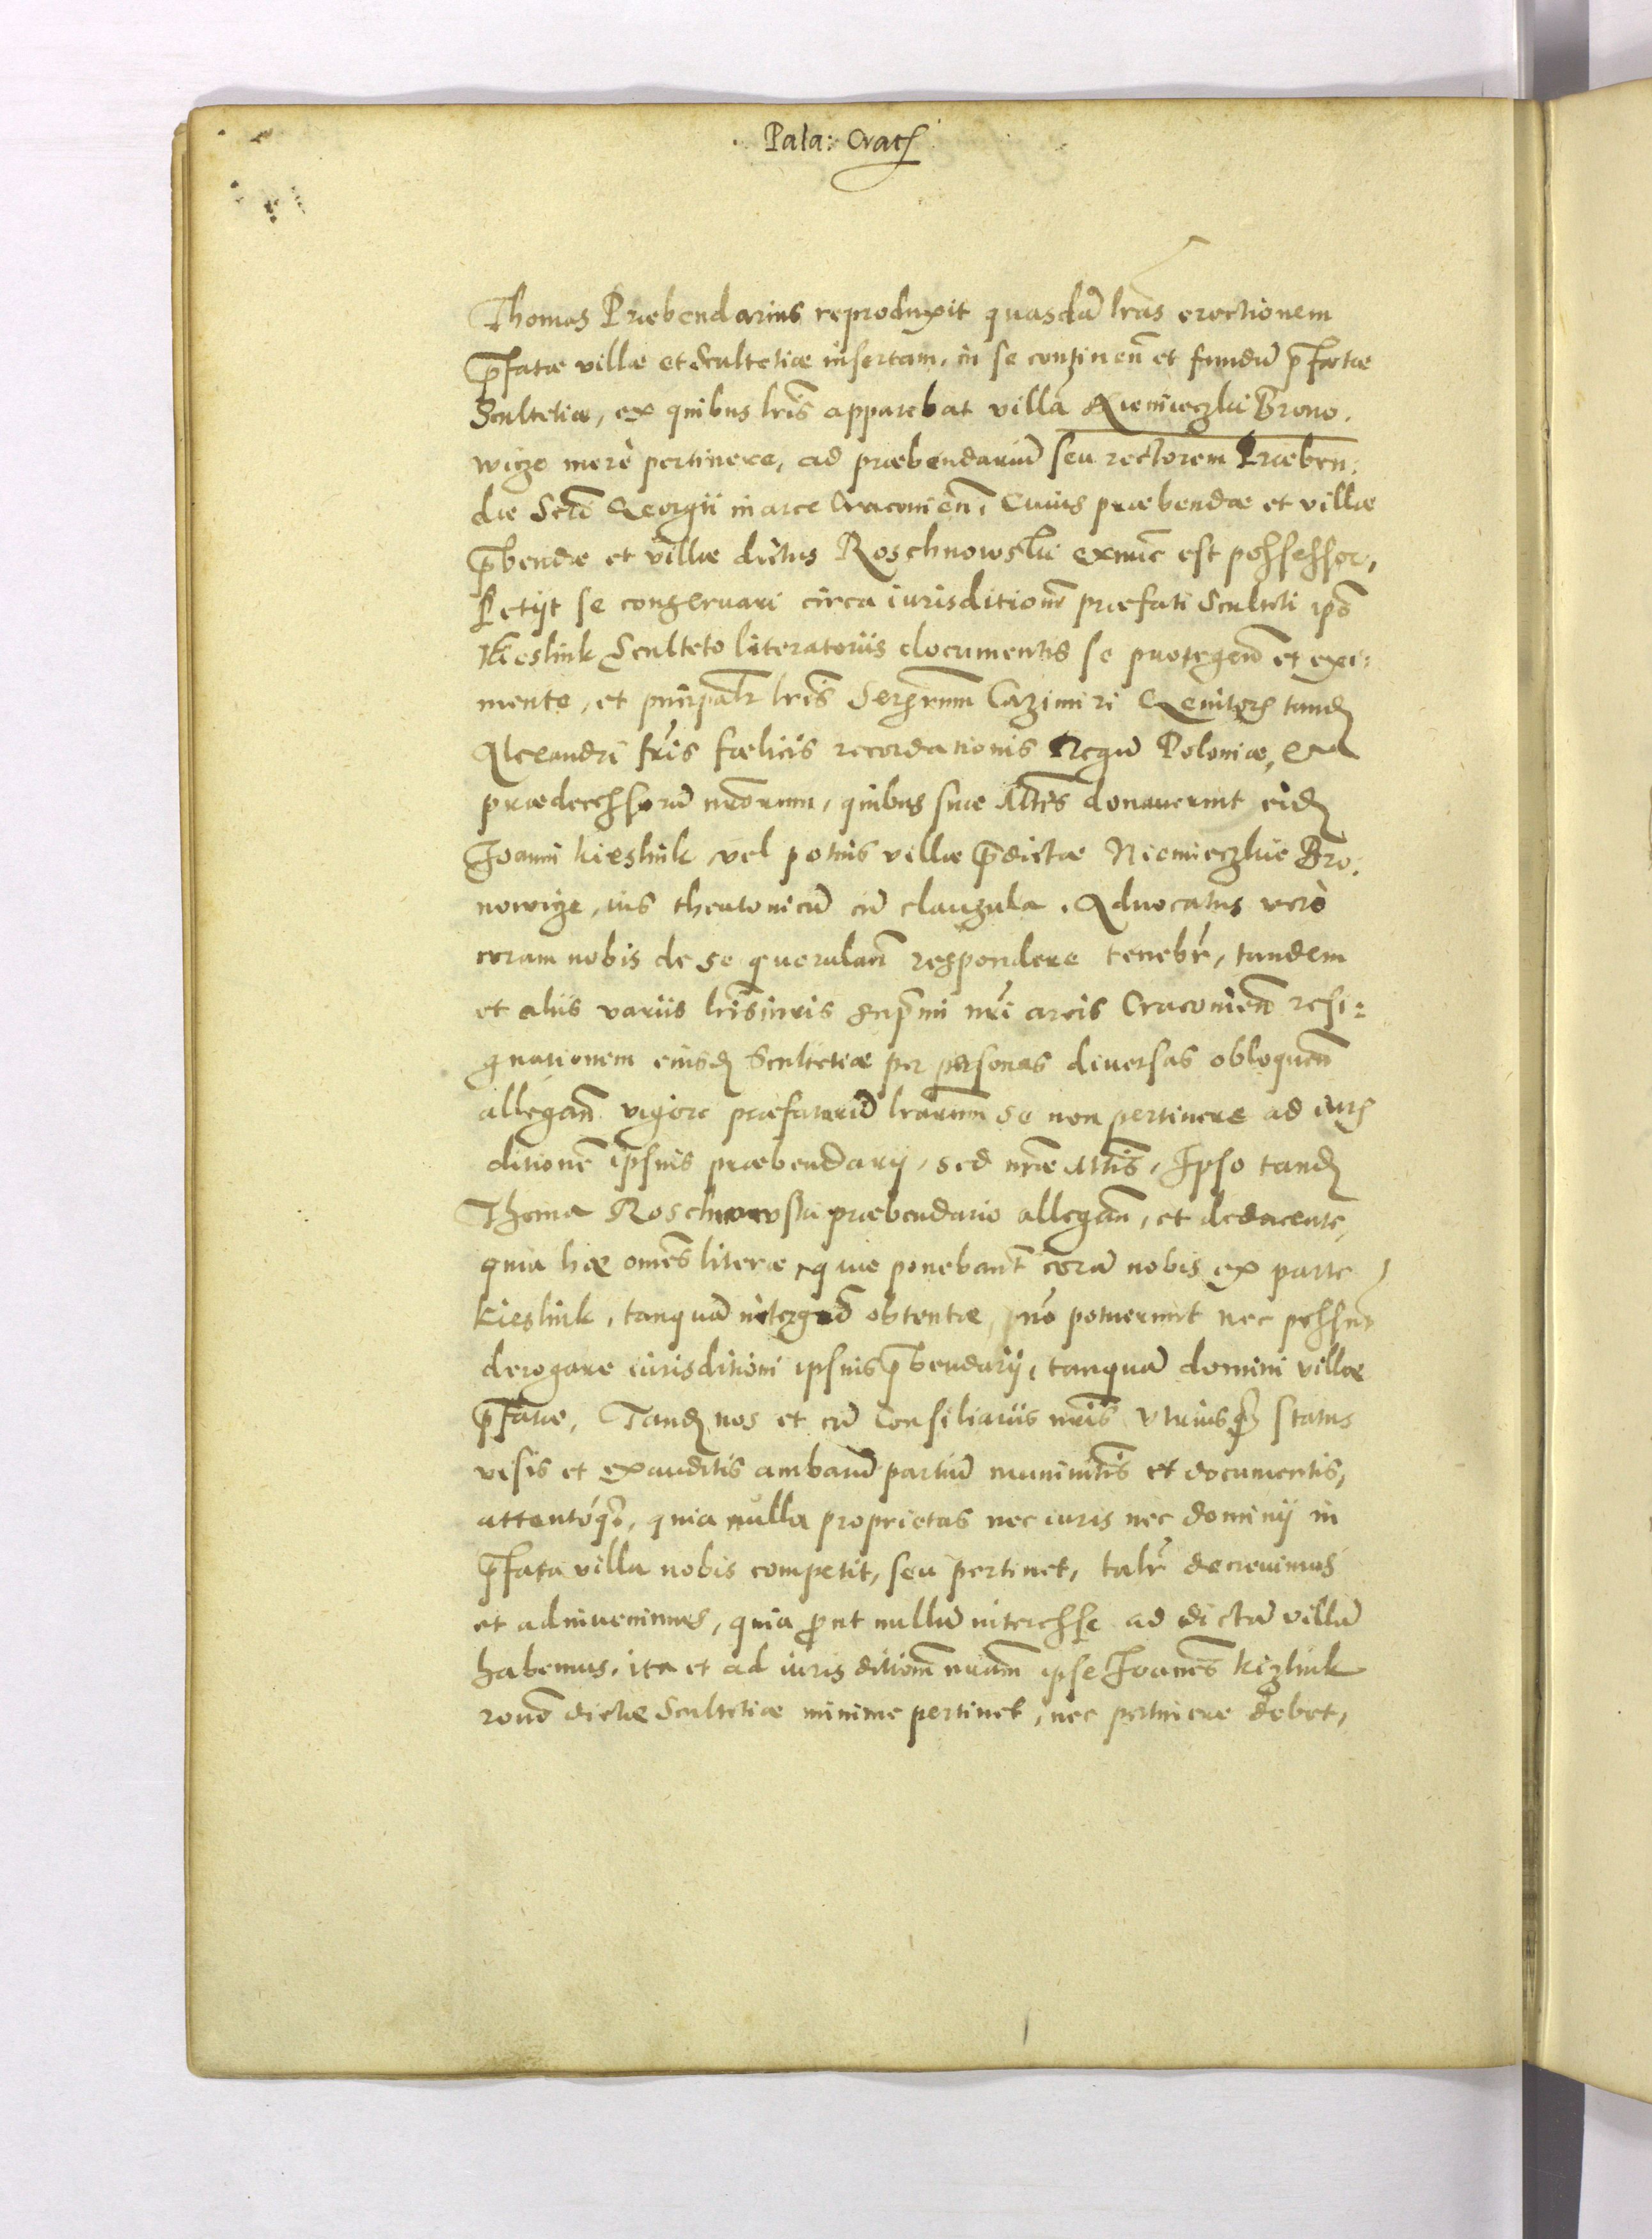 Pala: Crac
Thomas Præbendarius reproduxit quasdā lras erectionem
p̄fatæ villæ et Scultetiæ insertam, in se continen̄ et fundū p̄fatæ
Scultetiæ, ex quibus lris apparebat villā Niemieczkie Brono.
wicze merè pertinere, ad præbendariū seu rectorem Præben:
dæ Scti Georgii in arce Cracouien̄, Cuius præbendæ et villæ
p̄bendæ et villæ dictus Roschnowski exnunc est possessor,
Petijt se conseruari circa iurisditionē præfati Sculteti ipō
Kieslink Sculteto literatoriis documentis se protegen̄ et exi:
mente, et principalr lris Serenmm Cazimiri Genitoris tandē
Alexandri fris fœlicis recordationis Regū Poloniæ,
prædecessorū nrorum, quibus suæ Mtes donauerunt eidē
Joanni Kieslink vel potius villæ p̄dictæ Niemieczkie Bro:
nowicze, ius theutonicū cū clausula. Aduocatus verò
coram nobis de se querulan̄ respondere tenebr, tandem
et aliis variis lris iuris suprmi nri arcis Cracouien̄ resi:
gnationem eiusdē Scultetiæ per personas diuersas obloquen̄
allegan̄ vigore præfatarū lrarum se non pertinere ad iuris
ditionē ipsius præbendarij, sed nræ Mtis, Ipso tandē
Thoma Roschnowski præbendario allegan̄, et deducente,
quia hæ omēs literæ quæ ponebant corā nobis ex parte
Kieslink, tanquā obtentæ, potuerunt nec possunt
derogare iurisditioni ipsius p̄bendarij, tanquā domini villæ
p̄fatæ, Tandē nos et cū Consiliariis nris vtriusq; status
visis et exauditis ambarū partiū munimtis et documentis,
attentóq;, quia nulla proprietas nec iuris nec dominij in
p̄fata villa nobis competit, seu pertinet, talr decreuimus
et adinuenimus, quia prout nullū interesse ad dictā villā
habemus, ita et ad iurisditionē nram ipse Joanēs Kizlink
rōne dictæ Scultetiæ minime pertinet, nec pertinere debet,